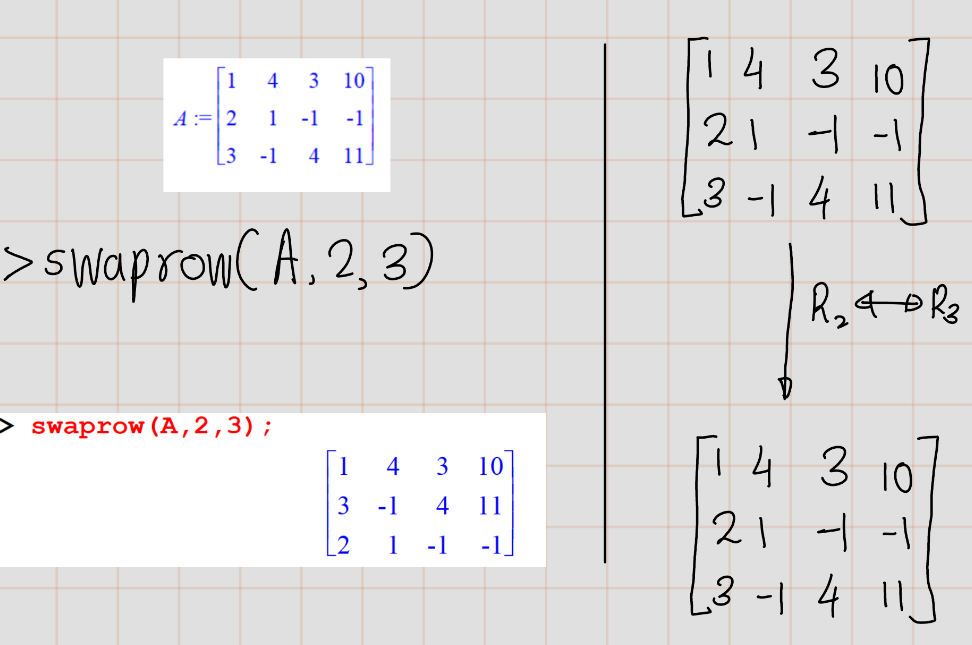 A := [1 4 3 10
2 1 -1 -1
3 -1 4 11]
>swaprow(A,2,3)
> swaprow(A,2,3);
[1 4 3 10
3 -1 4 11
2 1 -1 -1]
[1 4 3 10
2 1 -1 -1
3 -1 4 11]
R₂ ↔ R₃
[1 4 3 10
2 1 -1 -1
3 -1 4 11]